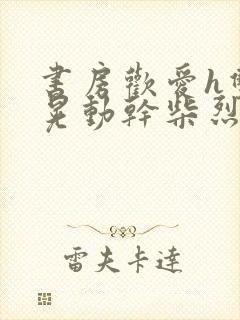 書房歡愛h
晃動幹柴烈
雷夫卡達